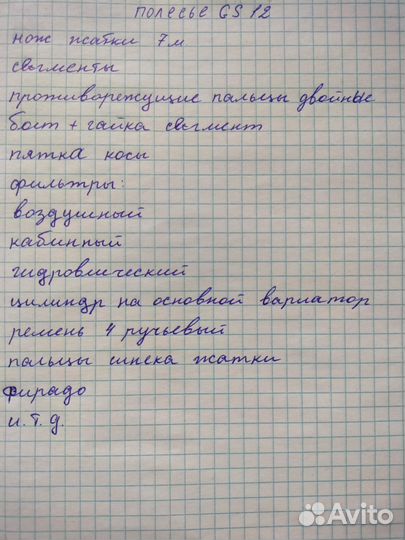 полесье GS 12
нож жатки 7м
сегменты
противорежущие пальцы двойные
болт + гайка сегмент
пятка косы
фильтры:
воздушный
кабинный
гидровлический
цилиндр на основной вариатор
ремень 4 ручьевый
пальцы шнека жатки
ферадо
и.т.д.
Avito